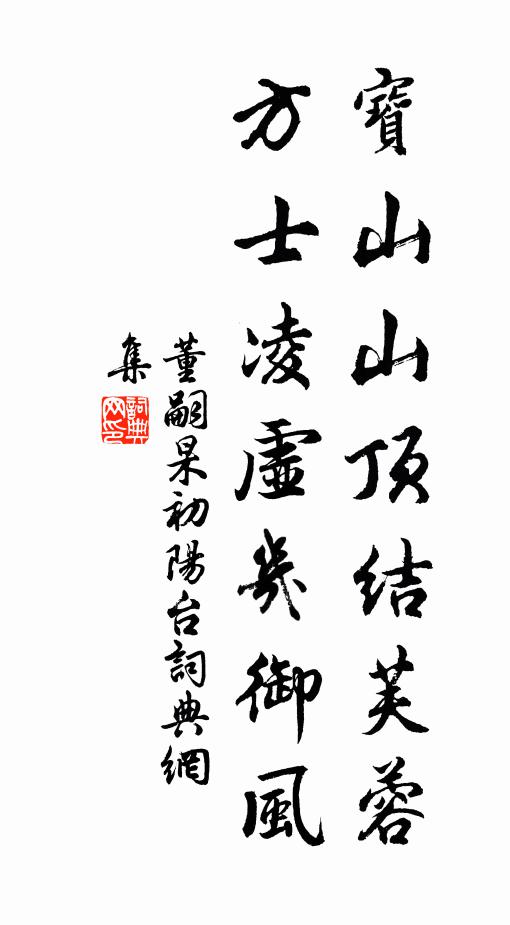 寶山山頂結芙蓉
方士凌虛幾御風
董嗣杲初陽台詞典網
集
詞典網印